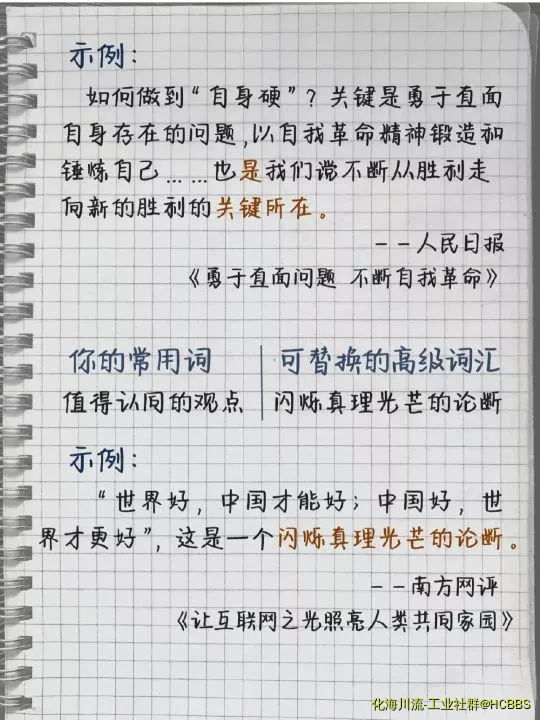 示例：
如何做到“自身硬”？关键是勇于直面
自身存在的问题，以自我革命精神锻造和
锤炼自己……也是我们党不断从胜利走
向新的胜利的关键所在。
——人民日报
《勇于直面问题 不断自我革命》
你的常用词 可替换的高级词汇
值得认同的观点 闪烁真理光芒的论断
示例：
“世界好，中国才能好；中国好，世
界才更好”，这是一个闪烁真理光芒的论断。
——南方网评
《让互联网之光照亮人类共同家园》
化海川流-工业社群@HCBBS